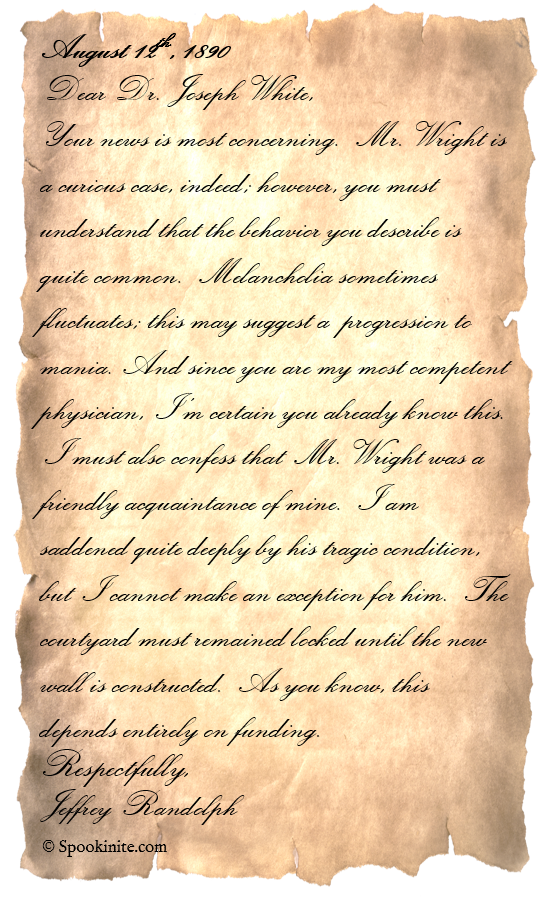 August 12th, 1890
Dear Dr. Joseph White,
Your news is most concerning. Mr. Wright is
a curious case, indeed; however, you must
understand that the behavior you describe is
quite common. Melancholia sometimes
fluctuates; this may suggest a progression to
mania. And since you are my most competent
physician, I'm certain you already know this.
I must also confess that Mr. Wright was a
friendly acquaintance of mine. I am
saddened quite deeply by his tragic condition,
but I cannot make an exception for him. The
courtyard must remained locked until the new
wall is constructed. As you know, this
depends entirely on funding.
Respectfully,
Jeffrey Randolph
© Spookinite.com